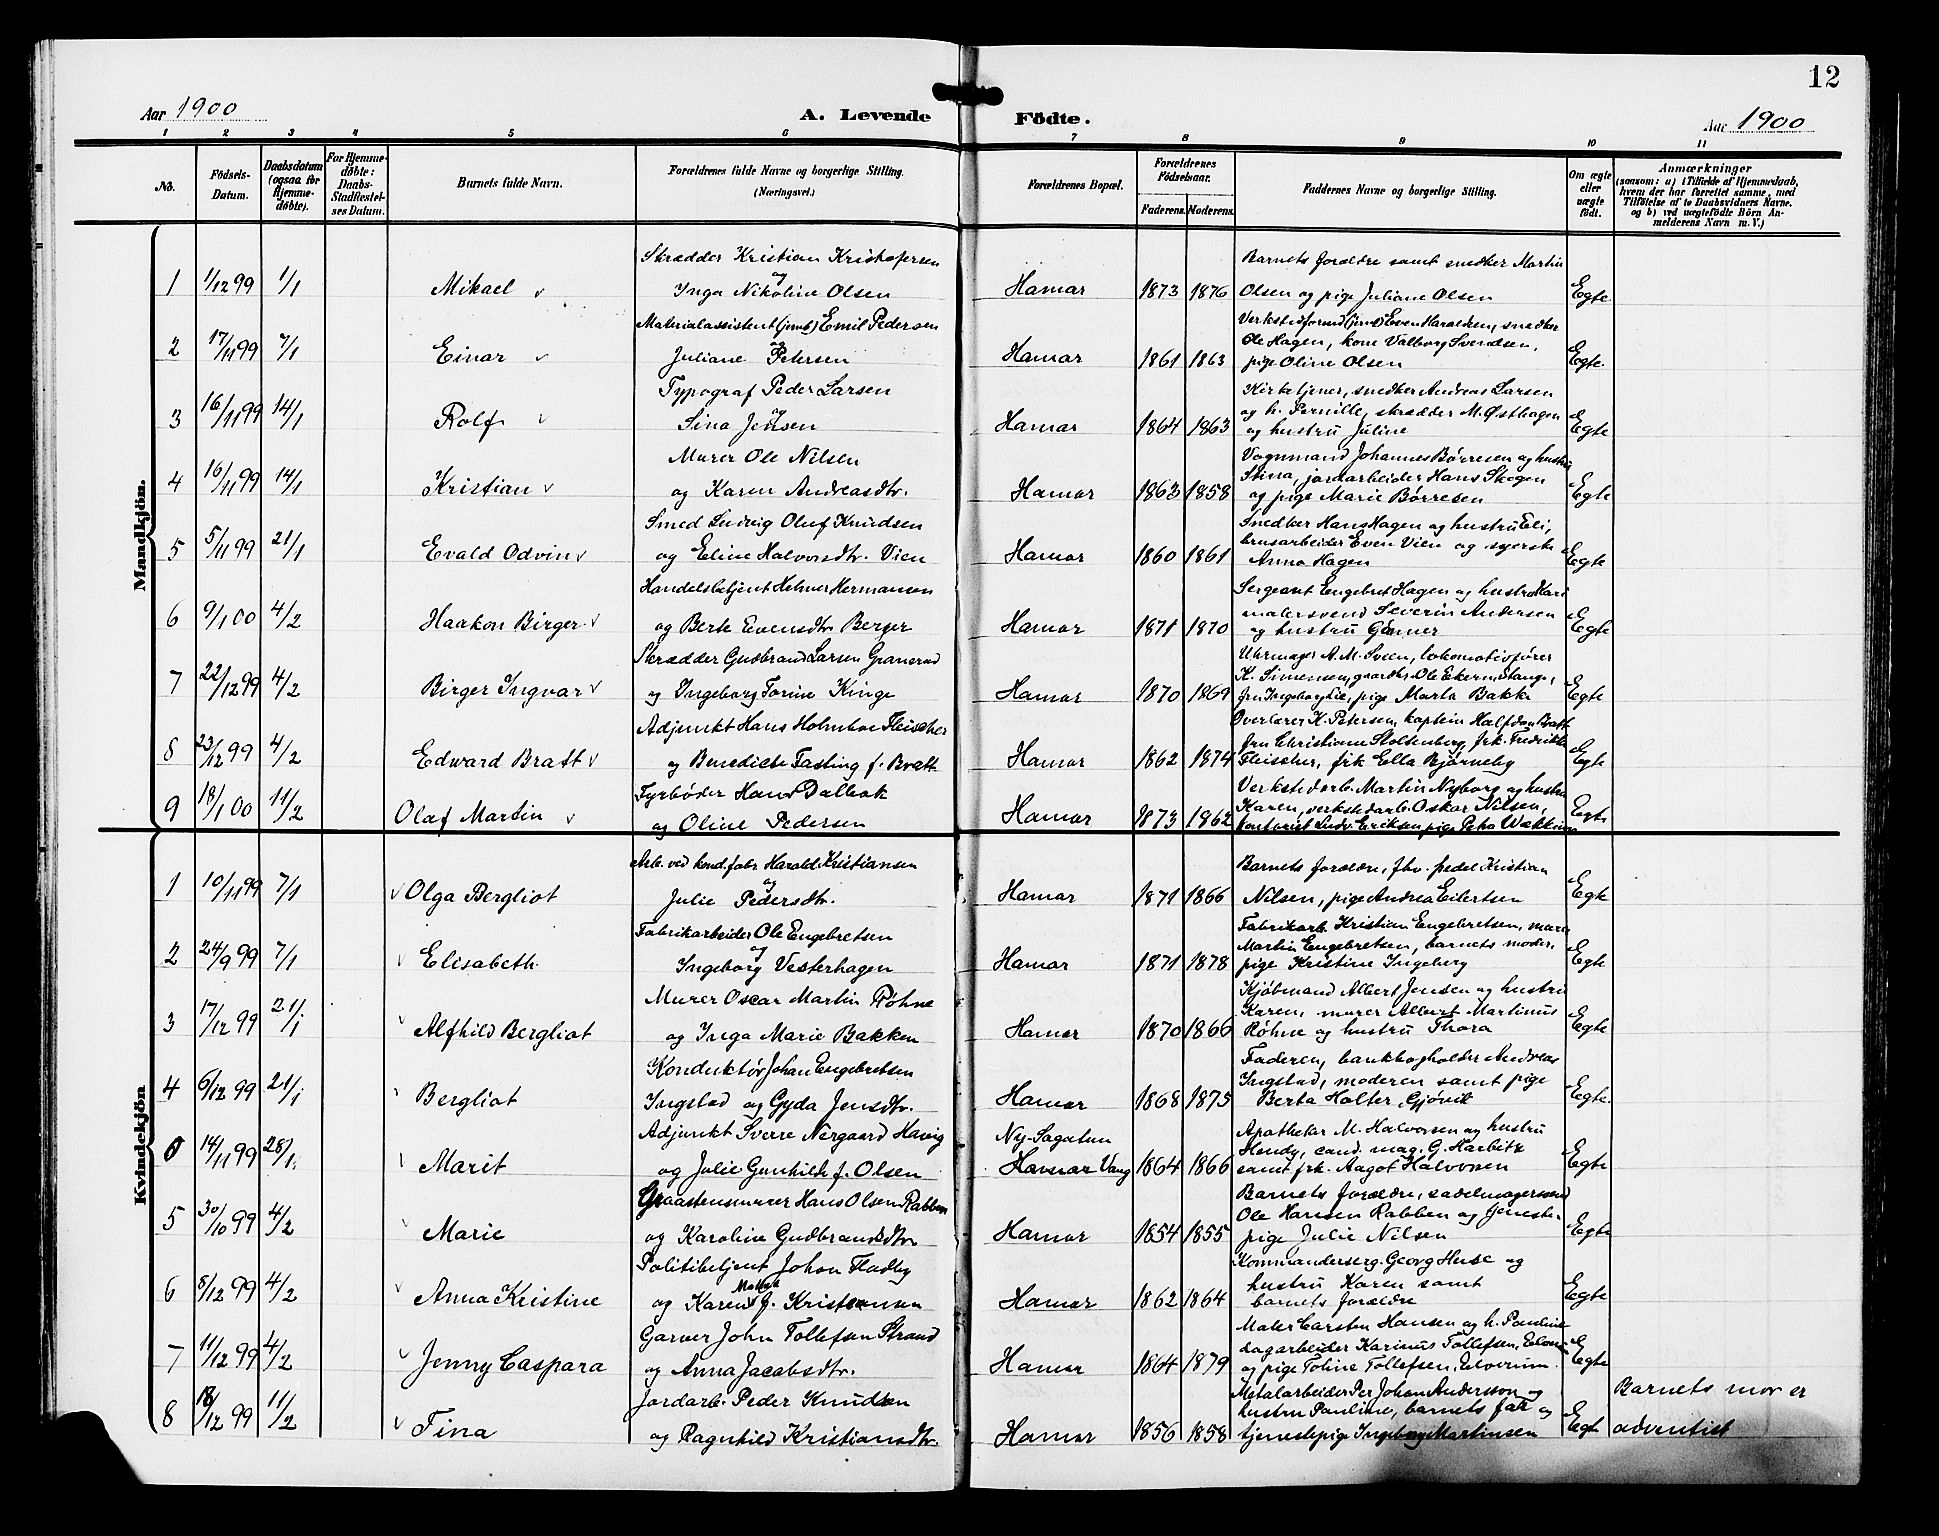 12
Aar 1900
A. Levende
Födte.
Aar 1900
1 2 3 4 5 6 7 8 9 10 11
No.
Födsels-Datum.
Daabsdatum (ogsaa for Hjemmedøbte).
For Hjemmedøbte: Daabs-Stadfæstelses Datum.
Barnets fulde Navn.
Forældrenes fulde Navne og borgerlige Stilling. (Næringsvei.)
Forældrenes Bopæl.
Forældrenes Födselsaar.
Faderens. Moderens.
Faddernes Navne og borgerlige Stilling.
Om ægte eller uægte födt.
Anmærkninger
(saasom: a) i Tilfælde af Hjemmedaab, hvem der har forrettet samme, med Tilföielse af to Daabsvidners Navne. og b) ved uægtefödte Börn Anmelderens Navn m. V.)
Mandkjön.
1 1/12 99 1/1 Mikael Skrædder Kristian Kristofersen og Inga Nikoline Olsen Hamar 1873 1876 Barnets forældre samt snedker Martin Olsen og pige Juliane Olsen Egte
2 17/11 99 7/1 Einar Materialassistent (jernb) Emil Pedersen og Juliane Petersen Hamar 1861 1863 Verkstedformd (jernb) Even Haraldsen, snedker Ole Hagen, kone Valborg Svendsen, pige Oline Olsen Egte.
3 16/11 99 14/1 Rolf Typograf Peder Larsen og Sina Jensen Hamar 1864 1863 Kirketjener, snedker Andreas Larsen og h. Pernille, skrædder M. Østhagen og hustru Juline Egte
4 16/11 99 14/1 Kristian Murer Ole Nilsen og Karen Andreasdtr. Hamar 1863 1858 Vognmand Johannes Børresen og hustru Stina, jordarbeider Hans Skogen og pige Marie Børresen Egte
5 5/11 99 21/1 Evald Odvin Smed Ludvig Oluf Knudsen og Eline Halvorsdtr. Vien Hamar 1860 1861 Snedker Hans Hagen og hustru Eli, brusarbeider Even Vien og syerske Anna Hagen Egte
6 9/1 00 4/2 Haakon Birger Handelsbetjent Helmer Hermansen og Berte Evensdtr Berger Hamar 1871 1870 Sergeant Engebret Hagen og hustru Kari malersvend Severin Andersen og hustru Gunner Egte
7 22/12 99 4/2 Birger Ingvar Skrædder Gudbrand Larsen Granerud og Ingeborg Torine Kinge Hamar 1870 1869 Uhrmager A. M. Sveen, lokomotivfører K. Simensen, gaardbr Ole Ekern Stange, fru Ingeborg Lie, pige Marta Bakke Egte
8 23/12 99 4/2 Edward Bratt Adjunkt Hans Holmboe Fleischer og Benedicte Fasting f. Bratt Hamar 1862 1874 Overlærer K. Petersen, kaptein Halfdan Bratt fru Christiane Stoltenberg, frk. Fredrikke Fleischer, frk Ella Bjørneby Egte
9 18/1 00 11/2 Olaf Martin Fyrbøder Hans Dalbak og Oline Pedersen Hamar 1873 1862 Verkstedarb. Martin Nyborg og hustru Karen, verkstedarb. Oskar Nilsen, kontorist Ludv. Eriksen, pige Petra Egte
Kvindekjön
1 10/11 99 7/1 Olga Bergliot Arb. ved kond.fabr Harald Kristiansen og Julie Pedersdtr. Hamar 1871 1866 Barnets forældre, fhv. pedel Kristian Nilsen, pige Andrea Eilertsen Egte
2 24/9 99 7/1 Elisabeth Fabrikarbeider Ole Engebretsen og Ingeborg Vesterhagen Hamar 1871 1878 Fabrikarb. Kristian Engebretsen, murer Martin Engebretsen, barnets moder, pige Kristine Ingeberg Egte
3 17/12 99 21/1 Alfhild Bergliot Murer Oscar Martin Røhne og Inga Marie Bakken Hamar 1870 1866 Kjøbmand Albert Jensen og hustru Karen, murer Albert Martinus Røhne og hustru Thora Egte
4 6/12 99 21/1 Bergliot Konduktør Johan Engebretsen Ingstad og Gyda Jensdtr. Hamar 1868 1875 Faderen, bankbogholder Andreas Ingstad, moderen samt pige Berta Holter, Gjøvik Egte.
0 14/11 99 28/1. Marit Adjunkt Sverre Nergaard Havig og Julie Gunhilde f. Olsen Ny-Sagatun Hamar Vang 1864 1866 Apotheker M. Halvorsen og hustru Hendy, cand. mag. G. Harbitz samt frk. Aagot Halvorsen Egte
5 30/10 99 4/2 Marie Graastensmurer Hans Olsen Rabben og Karoline Gudbrandsdtr. Hamar 1854 1855 Barnets forældre, sadelmagersvend Ole Hansen Rabben og tjenestepige Julie Nilsen Egte
6 8/12 99 4/2 Anna Kristine Politibetjent Johan Fladby og Karen Mathea f. Kristiansen Hamar 1862 1864 Kommandersergt. Georg Huse og hustru Karen samt barnets forældre Egte
7 11/12 99 4/2 Jenny Caspara Garver John Tollefsen Strand og Anna Jacobsdtr. Hamar 1864 1879 Maler Carsten Hansen og h. Pauline dagarbeider Karinus Tollefsen, Elverum og pige Toline Tollefsen, Elverum. Egte
8 18/12 99 11/2 Tina Jordarb. Peder Knudsen og Ragnhild Kristiansdtr. Hamar 1856 1858 Metalarbeider Per Johan Andersson og hustru Pauline, barnets far og tjenestepige Ingeborg Martinsen Egte Barnets mor er adventist